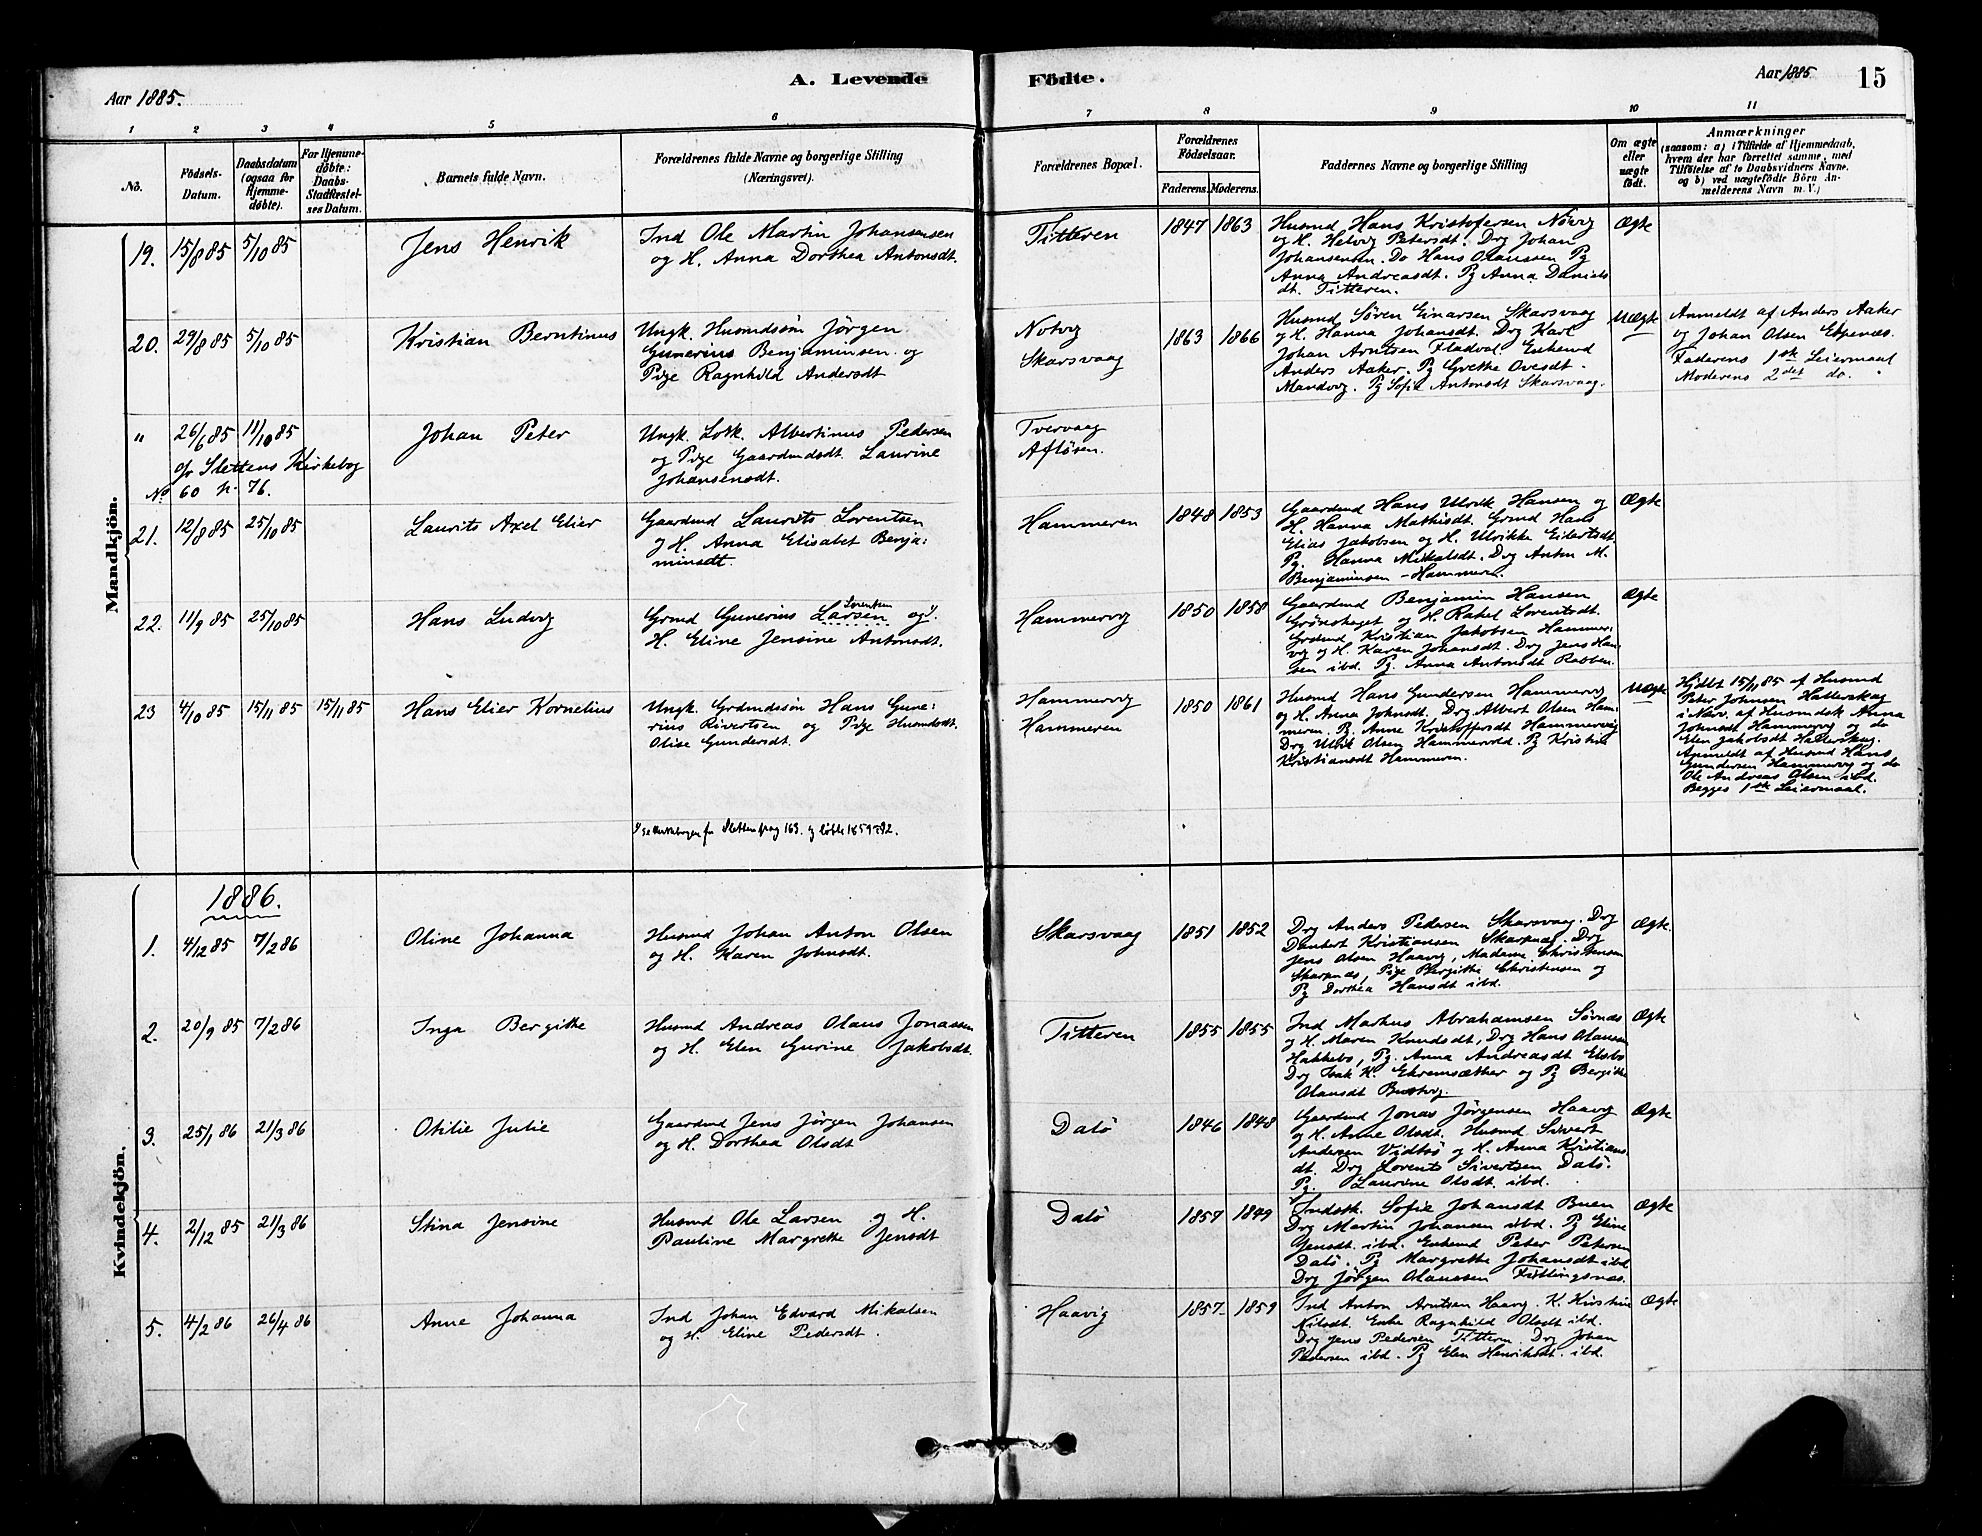 Aar 1885.
A. Levende
Födte.
Aar 1885
15
1 2 3 4 5 6 7 8 9 10 11
No.
Födsels-
Datum.
Daabsdatum
(ogsaa for
Hjemme-
døbte).
For Hjemme-
døbte:
Daabs-
Stadfæstel-
ses Datum.
Barnets fulde Navn.
Forældrenes fulde Navne og borgerlige Stilling
(Næringsvei).
Forældrenes Bopæl.
Forældrenes
Fødselsaar.
Faderens. Moderens.
Faddernes Navne og borgerlige Stilling
Om ægte
eller
uægte
født.
Anmærkninger
(saasom: a) i Tilfælde af Hjemmedaab,
hvem der har forrettet samme, med
Tilføielse af to Daabsvidners Navne,
og b) ved uægtefödte Börn An-
melderens Navn m. V.)
Mandkjön.
19. 15/8 85 5/10 85
Jens Henrik
Ind Ole Martin Johansensen
og H. Anna Dorthea Antonsdt.
Titteren
1847 1863
Husmd Hans Kristofersen Notvig
og H. Helvig Petersdt. Drg Johan
Johansensen. Do Hans Olaussen Pg
Anna Andreasdt. Pg Anna Daniels
dt. Titteren.
Ægte
20. 29/8 85 5/10 85
Kristian Berntinus
Ungk. Husmdssøn Jørgen
Gunerius Benjaminsen og
Pige Ragnhild Andersdt
Notvig
Skarsvaag
1863 1866
Husmd Søren Einarsen Skarsvaag
og H. Hanna Johansdt. Drg Karl
Johan Arntsen Fladval. Enkemd
Anders Aaker. Pg Grethe Ovesdt.
Mandvig. Pg Sofie Antonsdt Skarsvaag.
Uægte
Anmeldt af Anders Aaker
og Johan Olsen Espenæs.
Faderens 1ste Leiermaal
Moderens 2det do.
" 26/6 85 11/10 85
cfr Slettens Kirkebog
No 60 p. 76.
Johan Peter
Ungk. Losk. Albertinus Pedersen
og Pige Gaardmdsdt. Laurine
Johansensdt.
Tvervaag
Afløsen.
21. 12/8 85 25/10 85
Laurits Axel Elier
Gaardmd Laurits Lorentsen
og H. Anna Elisabet Benja:
minsdt.
Hammeren
1848 1853
Gaardmd Hans Ulrik Hansen og
H. Hanna Mathisdt. Grmd Hans
Elias Jakobsen og H. Ulrikke Eilertsdt
Pg. Hanna Mikalsdt. Drg Anton M.
Benjaminsen - Hammeren.
Ægte
22. 11/9 85 25/10 85
Hans Ludvig
Grmd Gunerius Larsen og 1/.
Lorentsen
H. Eline Jensine Antonsdt.
Hammervig
1850 1858
Gaardmd Benjamin Hansen
Grønskaget og H. Rakel Lorentsdt.
Grdmd Kristian Jakobsen Hammer:
vig og H. Karen Johansdt. Drg Jens Han:
sen ibd. Pg. Anna Antonsdt Rabben.
Ægte
23 4/10 85 15/11 85 15/11 85
Hans Elier Kornelius
Ungk. Grdmdssøn Hans Gune:
rius Sivertsen og Pige Husmdsdt.
Olise Gundersdt.
Hammervig
Hammeren
1850 1861
Husmd Hans Gundersen Hammervig
og H. Anna Johnsdt. Drg Albert Olsen Ham:
meren. Pg. Anne Kristoffersdt Hammervig
Drg Ulrik Olsen Hammervold. Pg Kristine
Kristiansdt Hammeren.
Uægte
Hjdbt 15/11 85 af Husmd
Peter Johnsen Hatleskag
i Nærv. af Husmdsk Anna
Johnsdt Hammervig og do
Elen Jakobsdt Hatleskag.
Anmeldt af Husmd Hans
Gundersen Hammervig og do
Ole Andreas Olsen ibd.
Begges 1ste Leiermaal.
1/ se Kirkebogen for Sletten pag 163. og 
Kvindekjön.
1886.
1. 4/12 85 7/2 86
Oline Johanna
Husmd Johan Anton Olsen
og H. Karen Johnsdt.
Skarsvaag
1851 1852
Drg Anders Pedersen Skarsvaag. Drg
Dantert Kristiansen Skarpnæs. Drg
Jens Olsen Haavig, Madame Christensen
Skarpnæs, Pige Bergitte Christensen og
Pg Dorthea Hansdt ibd.
Ægte.
2. 20/9 85 7/2 86
Inga Bergitte
Husmd Andreas Olaus Jonassen
og H. Elen Gurine Jakobsdt.
Titteren
1855 1855
Ind Markus Abrahamsen Sørnæs
og H. Maren Knudsdt, Drg Hans Olaussen
Hakkebo, Pg. Anna Andreasdt Elsbø
Drg Isak K. Ekremsæther og Pg Bergitte
Olausdt Bustvig.
Ægte
3. 25/1 86 21/3 86
Otilie Julie
Gaardmd Jens Jørgen Johansen
og H. Dorthea Olsdt
Dalö
1846 1848
Gaardmd Jonas Jørgensen Haavig
og H. Anne Olsdt. Husmd Sivert
Andersen Vidløs og H. Anna Kristians
dt. Drg Lorents Sivertsen Dalö.
Pg. Laurine Olsdt ibd.
Ægte
4. 2/12 85 21/3 86
Stina Jensine
Husmd Ole Larsen og H.
Pauline Margrethe Jensdt
Dalö
1857 1849
Indsk. Sofie Johansdt Buen
Drg Martin Johansen ibd. Pg Eline
Jensdt. ibd. Enkemd Peter Petersen
Dalö. Pg Margrethe Johansdt ibd
Drg Jørgen Olaussen Fillingsnæs.
Ægte
5. 4/2 86 26/4 86
Anne Johanna
Ind Johan Edvard Mikalsen
og H. Eline Pedersdt.
Haavig
1857 1859
Ind Anton Arntsen Haavig. K. Kirstine
Nilsdt. Enke Ragnhild Olsdt ibd.
Drg Jens Pedersen Titteren. Drg Johan
Pedersen ibd. Pg Elen Henriksdt. ibd.
Ægte